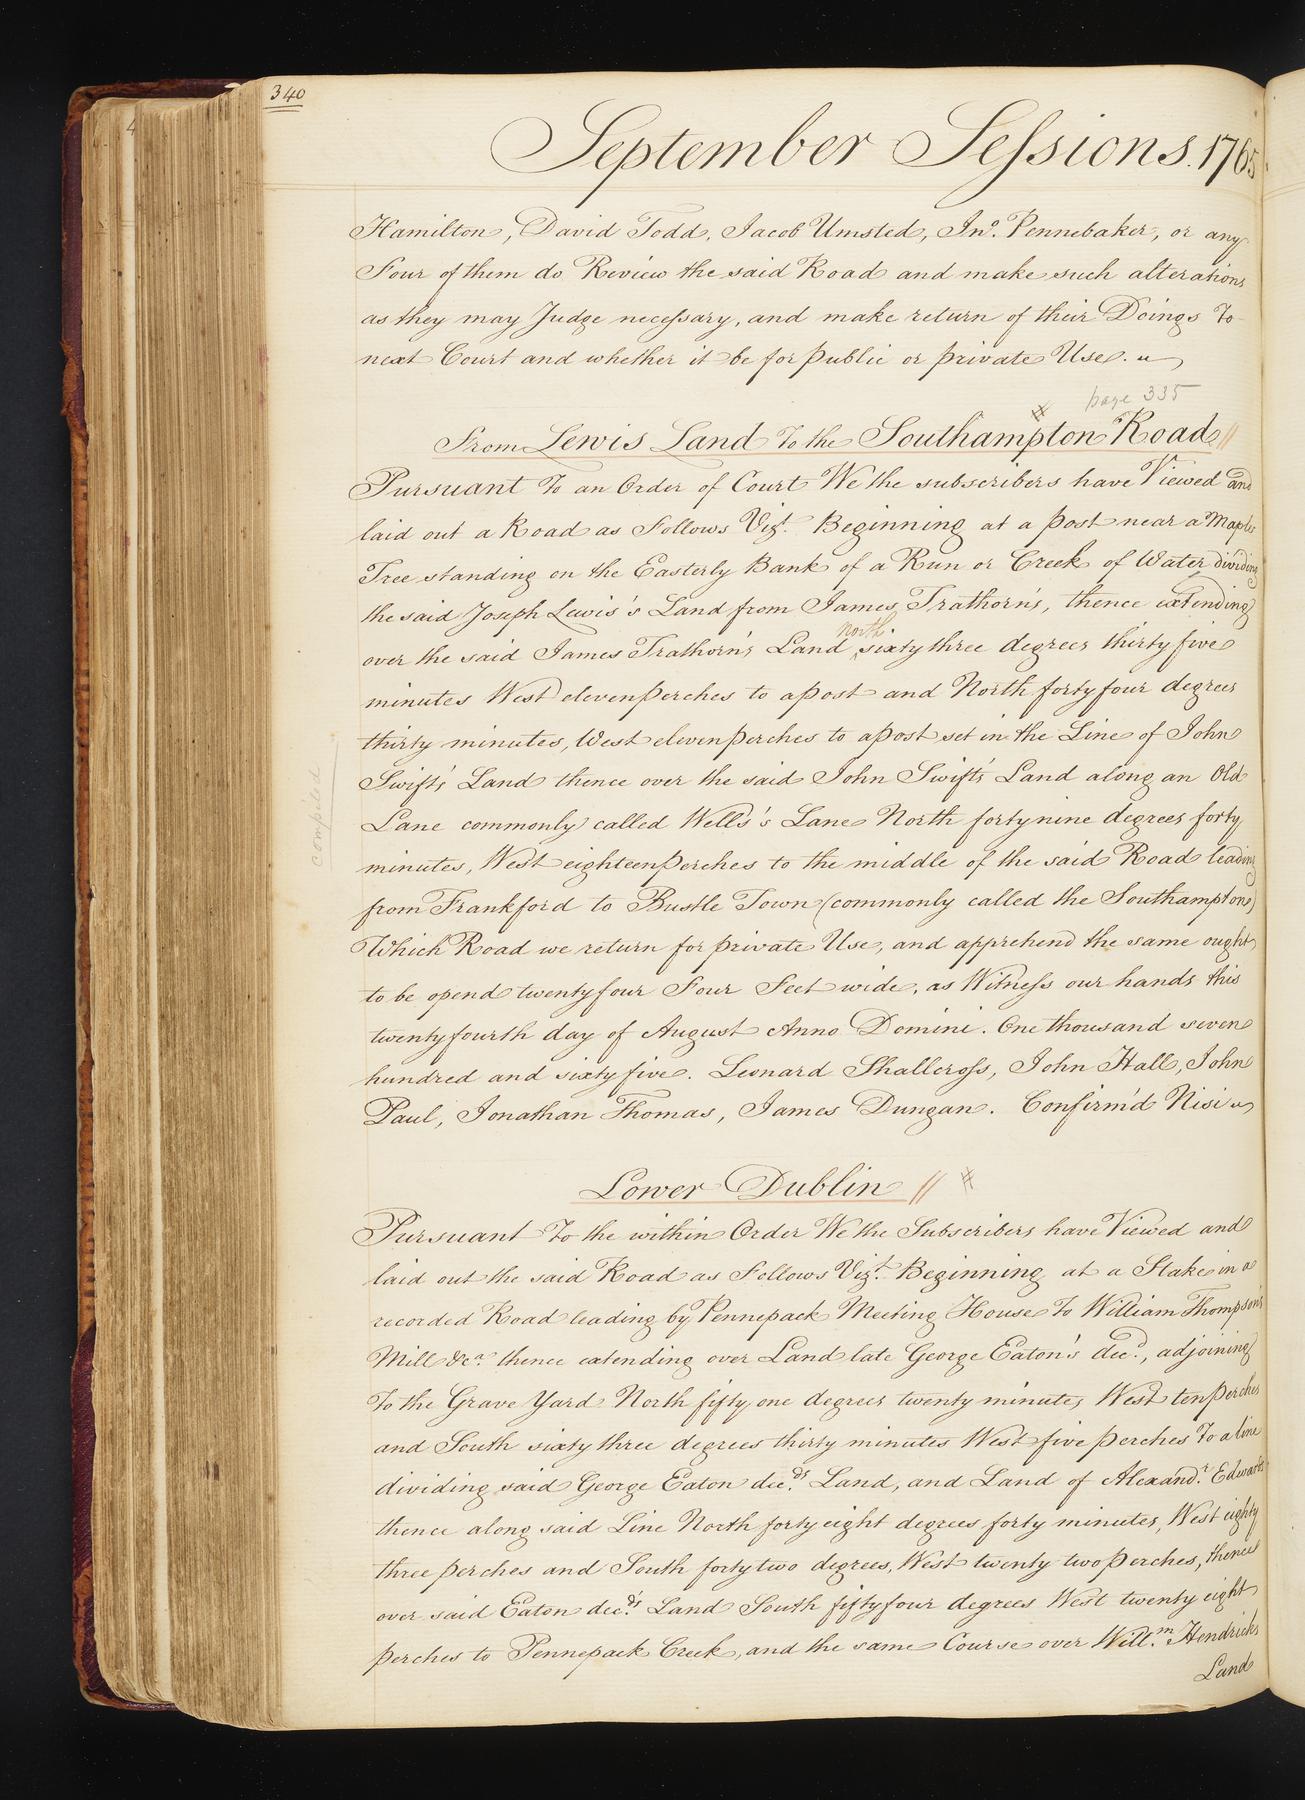 340
September Sessions. 1765
Hamilton, David Todd, Jacob Umsted, Jno. Pennebaker, or any
Four of them do Review the said Road and make such alterations
as they may Judge necessary, and make return of their Doings To
next Court and whether it be for public or private Use.
page 335
From Lewis Land To the Southampton Road //
Pursuant To an Order of Court We the subscribers have Viewed and
laid out a Road as Follows Vizt. Beginning at a post near a Maple
Tree standing on the Easterly Bank of a Run or Creek of Water dividing
the said Joseph Lewis's Land from James Trathorn's, thence extending
over the said James Trathorn's Land north sixty three degrees thirty five
minutes West eleven perches to a post and North forty four degrees
thirty minutes, West eleven perches to a post set in the Line of John
Swifts' Land thence over the said John Swifts' Land along an Old
Lane commonly called Wells's Lane North forty nine degrees forty
minutes, West eighteen perches to the middle of the said Road leading
from Frankford to Bustle Town (commonly called the Southampton)
Which Road we return for private Use, and apprehend the same ought
to be opend twenty four Four Feet wide, as Witness our hands this
twenty fourth day of August Anno Domini. One thousand seven
hundred and sixty five. Leonard Shallcross, John Hall, John
Paul, Jonathan Thomas, James Dungan. Confirm'd Nisi
compiled
Lower Dublin //
Pursuant To the within Order We the Subscribers have Viewed and
laid out the said Road as Follows Vizt. Beginning at a Stake in a
recorded Road leading by Pennepack Meeting House To William Thompson's
Mill &ca. thence extending over Land late George Eaton's decd., adjoining
To the Grave Yard North fifty one degrees twenty minutes West ten perches
and South sixty three degrees thirty minutes West five perches To a line
dividing said George Eaton decds. Land, and Land of Alexandr. Edwards
thence along said Line North forty eight degrees forty minutes, West eighty
three perches and South forty two degrees, West twenty two perches, thence
over said Eaton decd's. Land South fifty four degrees West twenty eight
perches to Pennepack Creek, and the same Course over Willm. Hendricks
Land